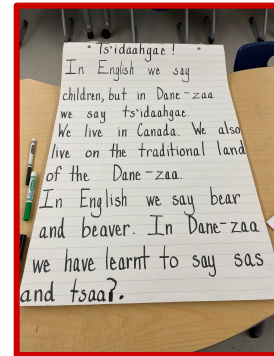 Ts'idaahgae!
In English we say
children, but in Dane-zaa
we say ts'idaahgae.
We live in Canada. We also
live on the traditional land
of the Dane-zaa.
In English we say bear
and beaver. In Dane-zaa
we have learnt to say sas
and tsaaʔ.